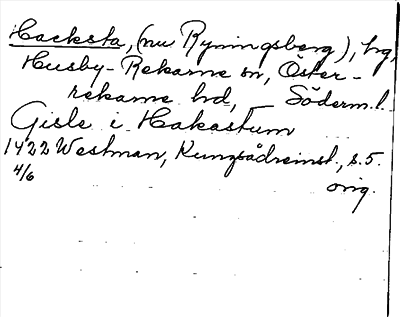 Hacksta, (nu Ryningsberg), hg,
Husby-Rekarne sn, Öster-
rekarne hd, Söderm.l.
Gisle i Hakastum
1422 Westman, Kungsådreinst., s.5.
4/6 orig.